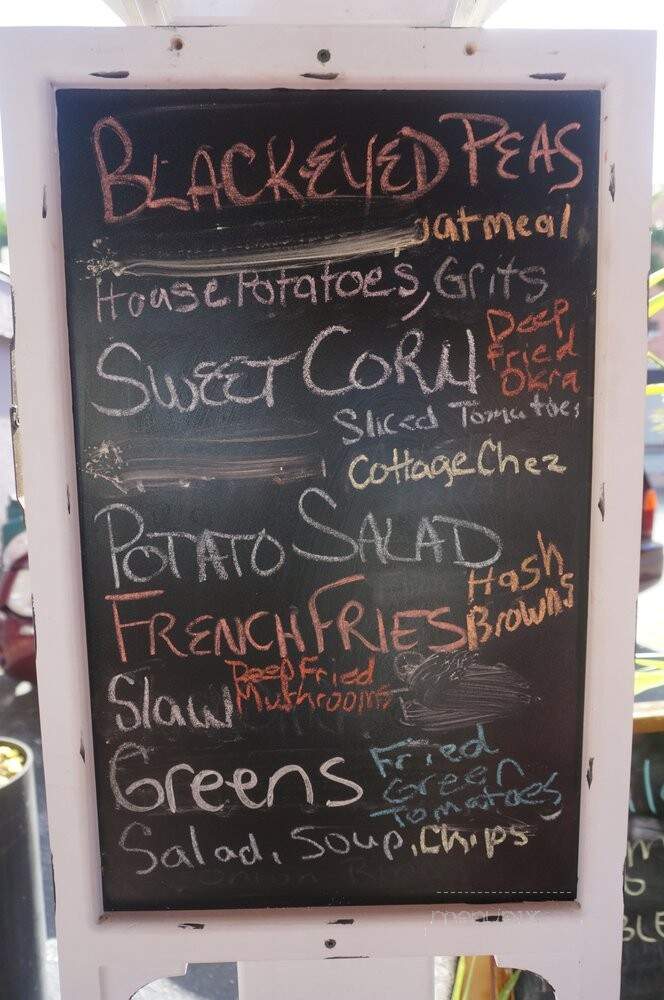 BLACKEYED PEAS
oatmeal
House Potatoes, Grits
SWEET CORN
Deep
Fried
Okra
Sliced Tomatoes
Cottage Chez
POTATO SALAD
Hash
Browns
FRENCH FRIES
Slaw
Deep Fried
Mushrooms
Greens
Fried
Green
Tomatoes
Salad, Soup, Chips
menupix